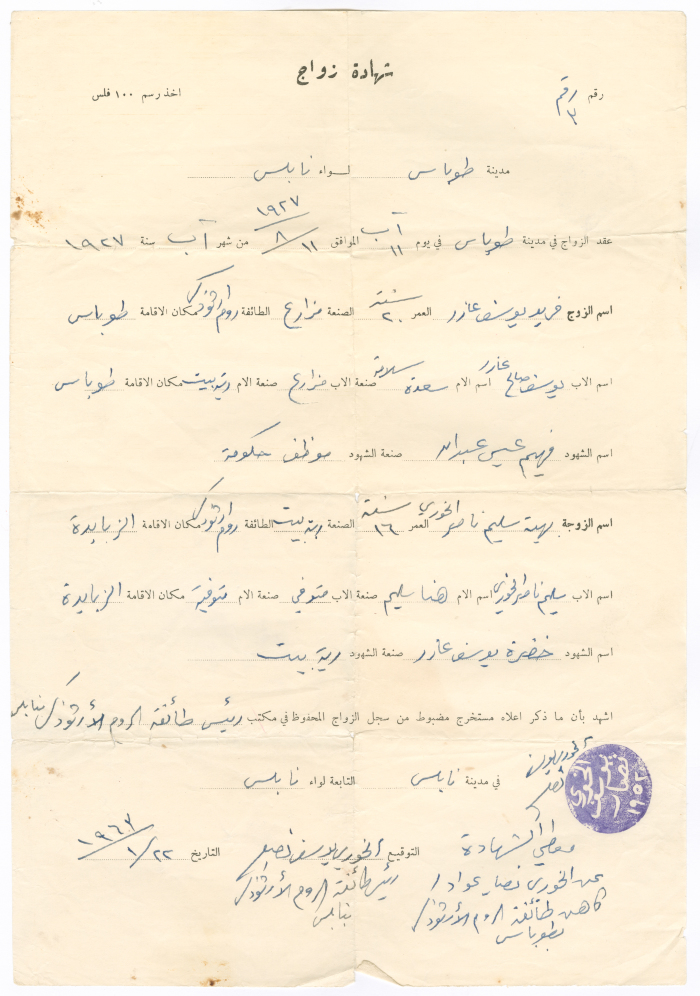 شهادة زواج
رقم رقم ٣ اخذ رسم ١٠٠ فلس
مدينة طوباس لواء نابلس
عقد الزواج في مدينة طوباس في يوم ١١ آب الموافق ١١/٨/١٩٢٧ من شهر آب سنة ١٩٢٧
اسم الزوج فريد يوسف عازر العمر ٢٠ سنة الصنعة مزارع الطائفة روم ارثوذكس مكان الاقامة طوباس
اسم الاب يوسف صالح عازر اسم الام سعدة سلامة صنعة الاب مزارع صنعة الام ربة بيت مكان الاقامة طوباس
اسم الشهود فهيم عيسى عبدالله صنعة الشهود موظف حكومة
اسم الزوجة بهية سليم ناصر الخوري العمر ١٦ سنة الصنعة ربة بيت الطائفة روم ارثوذكس مكان الاقامة الزبابدة
اسم الاب سليم ناصر الخوري اسم الام هنا سليم صنعة الاب متوفي صنعة الام متوفية مكان الاقامة الزبابدة
اسم الشهود خضرة يوسف عازر صنعة الشهود ربة بيت
اشهد بأن ما ذكر اعلاه مستخرج مضبوط من سجل الزواج المحفوظ في مكتب رئيس طائفة الروم الأرثوذكس بنابلس
في مدينة نابلس التابعة لواء نابلس
التوقيع الخوري يوسف التاريخ ٢٢/١/١٩٦٣
معطي الشهادة
رئيس طائفة الروم الأرثوذكس
بنابلس
عن الخوري نصار عواد
كاهن طائفة الروم الأرثوذكس
بطوباس
١٩٥٢